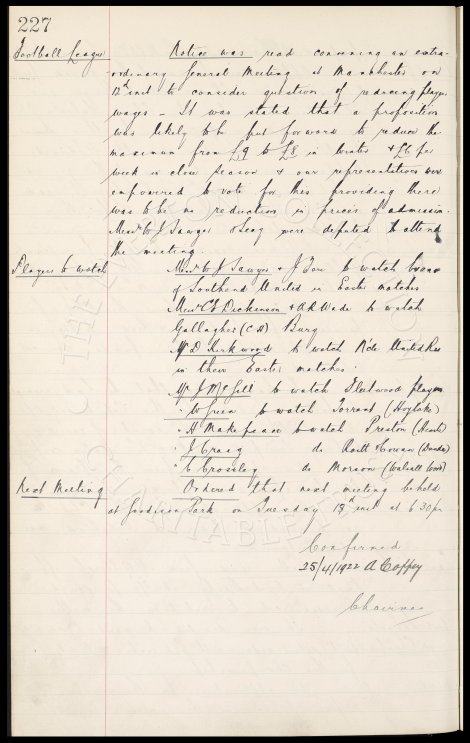 227
Football League Notice was read convening an extra-
ordinary General Meeting at Manchester on
12th inst to consider question of reducing players
wages – It was stated that a proposition
was likely to be put forward to reduce the
maximum from £9 to £8 in winter & £6 per
week in close season & our representatives were
empowered to vote for this providing there
was to be no reduction in prices of admission.
Messrs W J Sawyer & were deputed to attend
the meeting.
Players to watch Messrs W J Sawyer & J to watch
of Southend United in Easter matches
Messrs Dickenson & A R Wade to watch
Gallagher (C H) Bury
Mr D Kirkwood to watch United
in their Easter matches.
Mr J McGill to watch Fleetwood players
" W Green to watch Torrant (Hoylake)
" H Makepeace to watch Preston (Hearts)
" J Craig do Raitt & Cowan (Dundee)
" E Crossley do Morson (Walsall Wood)
Next Meeting Ordered that next meeting be held
at Goodison Park on Tuesday 18th inst at 6 30 pm
Confirmed
25/4/1922 A Coffey
Chairman
THE
CHARITABLE